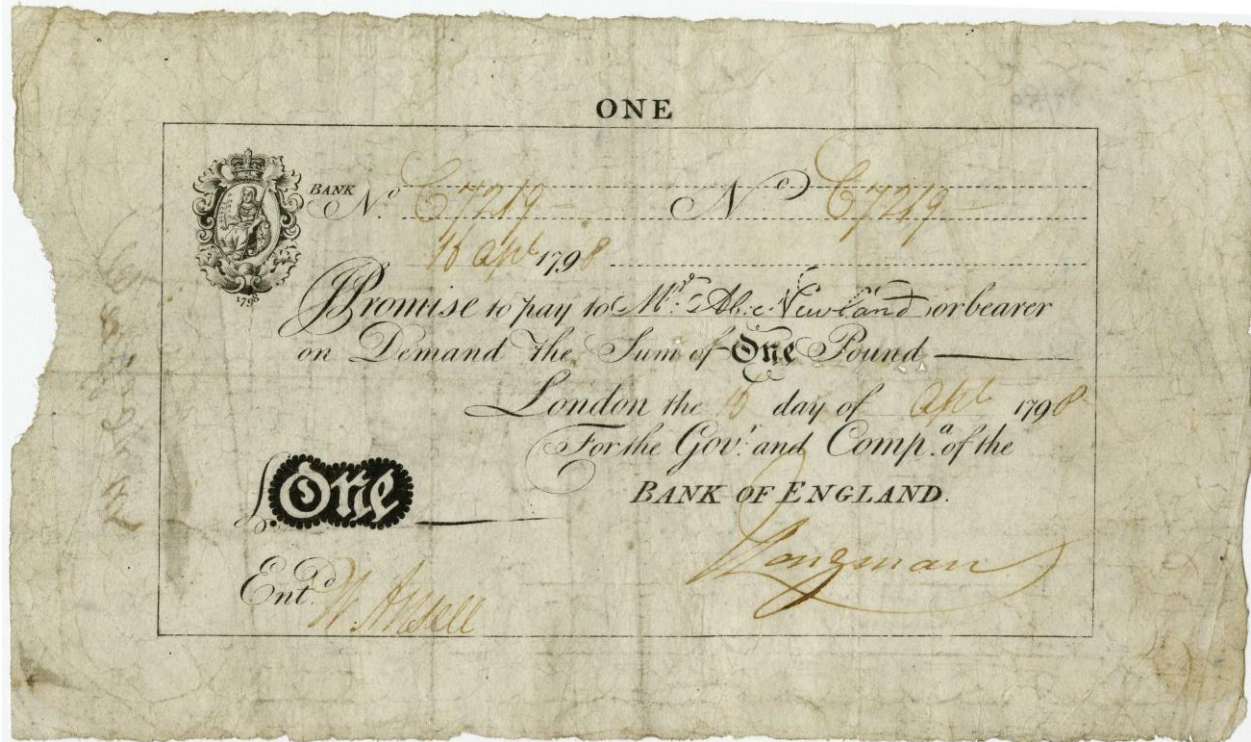 ONE
BANK No. C7219 No. C7219
1798
1798
I Promise to pay to Mr. Abm. Newland or bearer
on Demand the Sum of One Pound
London the day of Apl 1798
For the Govr. and Compa. of the
BANK OF ENGLAND.
£ One
Longman
Entd. W Ansell